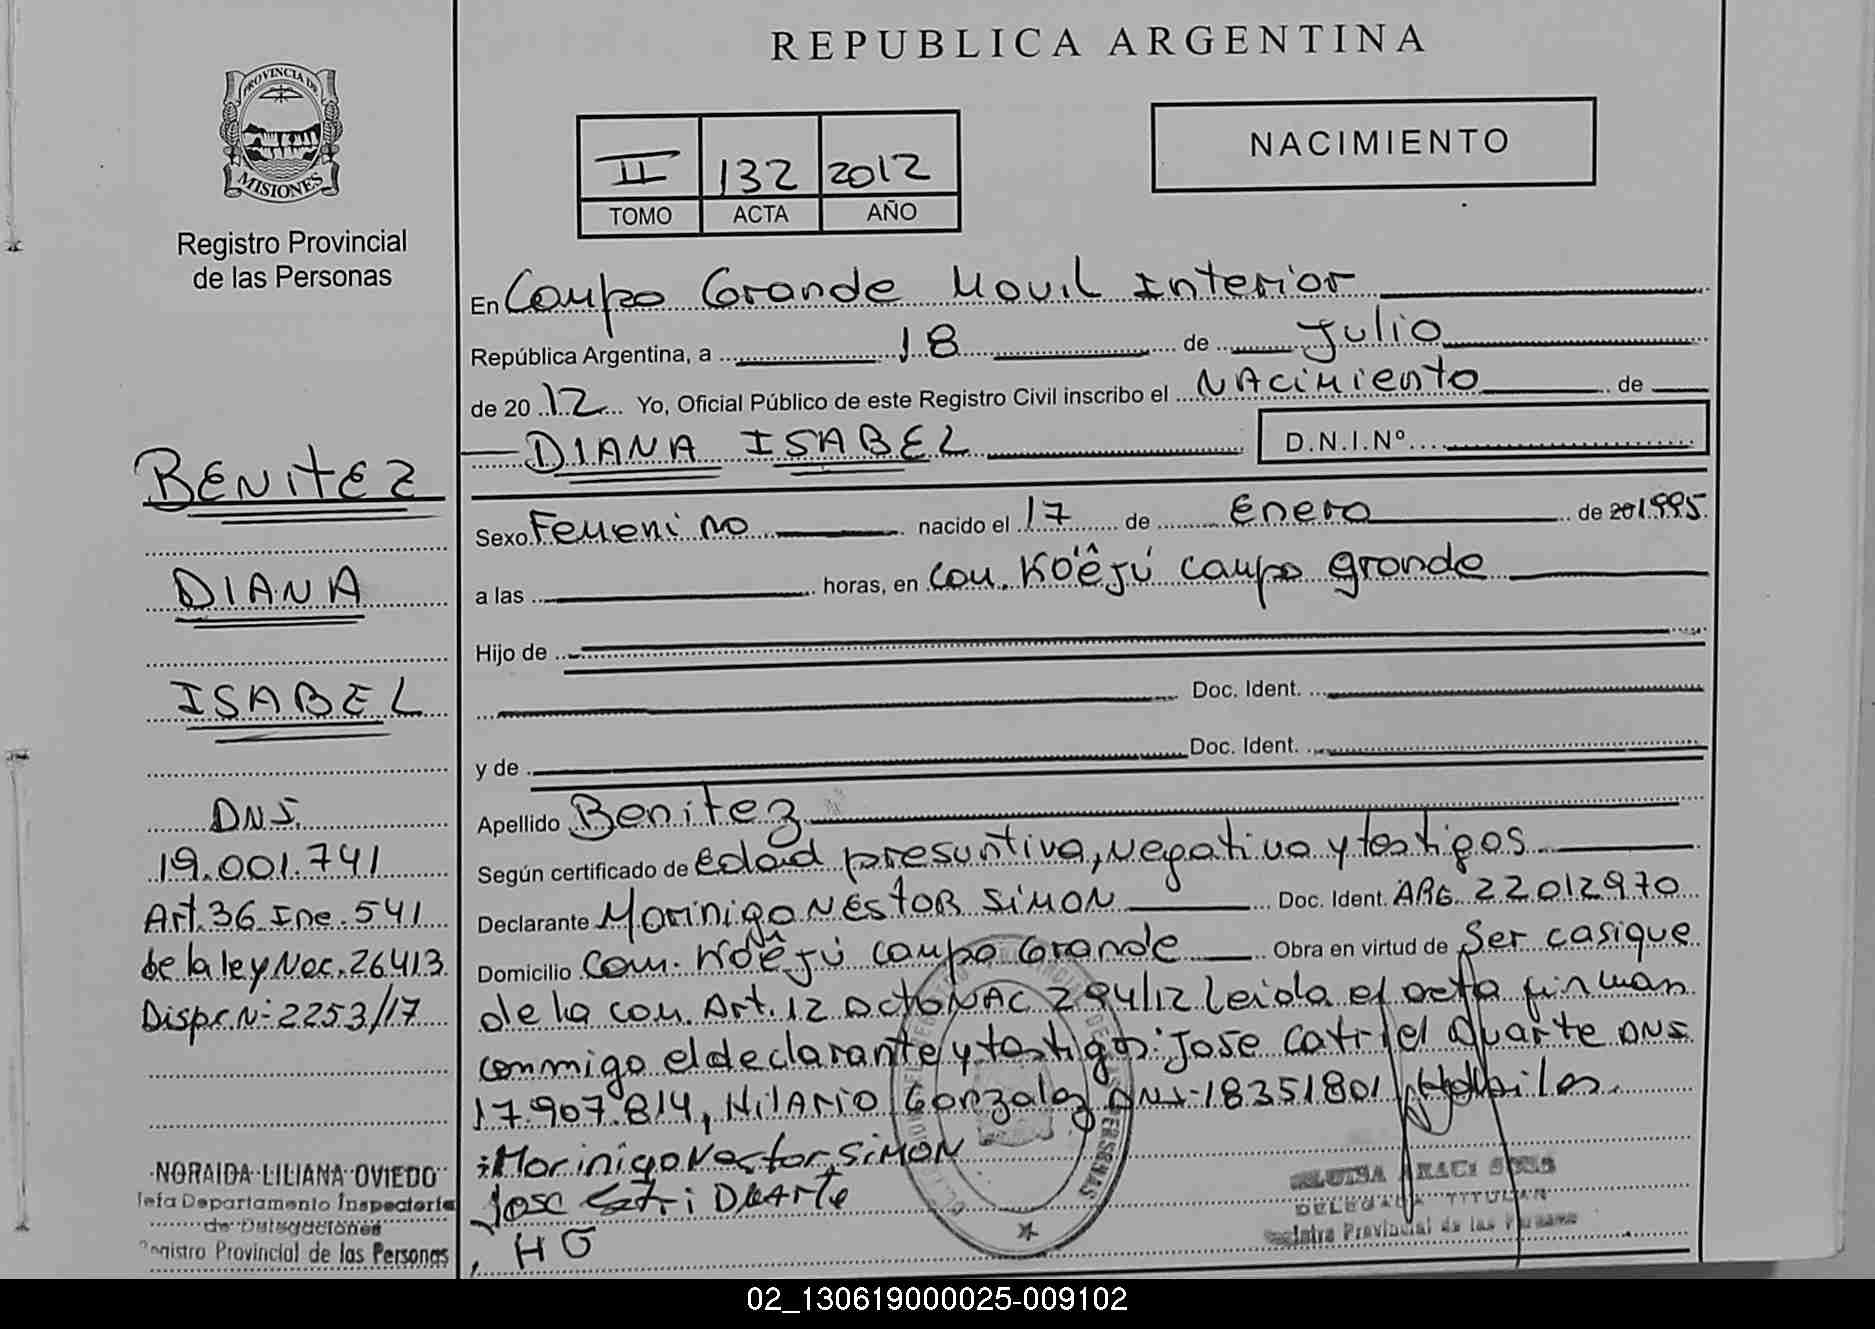 REPUBLICA ARGENTINA
PROVINCIA DE
MISIONES
Registro Provincial
de las Personas
II 132 2012
TOMO ACTA AÑO
NACIMIENTO
En Campo Grande Movil Interior
República Argentina, a 18 de Julio
de 2012 Yo, Oficial Público de este Registro Civil inscribo el NAcimiento de
DIANA ISABEL D.N.I.Nº
Sexo Femenino nacido el 17 de Enero de 201995
a las horas, en Com. Kö'êjú campo grande
Hijo de
Doc. Ident.
y de Doc. Ident.
Apellido Benitez
Según certificado de edad presuntiva, negativa y testigos
Declarante Morinigo NÉSTOR SiMON Doc. Ident. ARG. 22012970
Domicilio Com. Kö'êjú campo Grande Obra en virtud de Ser casique
de la com. Art. 12 DctoNAC 294/12 leida el acta firman
conmigo el declarante y testigos: Jose Catriel Duarte DNI
17.907.814, HilARIO Gonzalez DNI-18351801 Habiles.
Morinigo Nestor SiMON
Jose Duarte
HG
BENITEZ
DIANA
ISABEL
DNI.
19.001.741
Art. 36 Inc. 541
de la ley Nac. 26413
Dispc. Nº 2253/17
NORAIDA LILIANA OVIEDO
Jefa Departamento Inspectoría
de Delegaciones
Registro Provincial de las Personas
DELEGADA TITULAR
Registro Provincial de las Personas
02_130619000025-009102